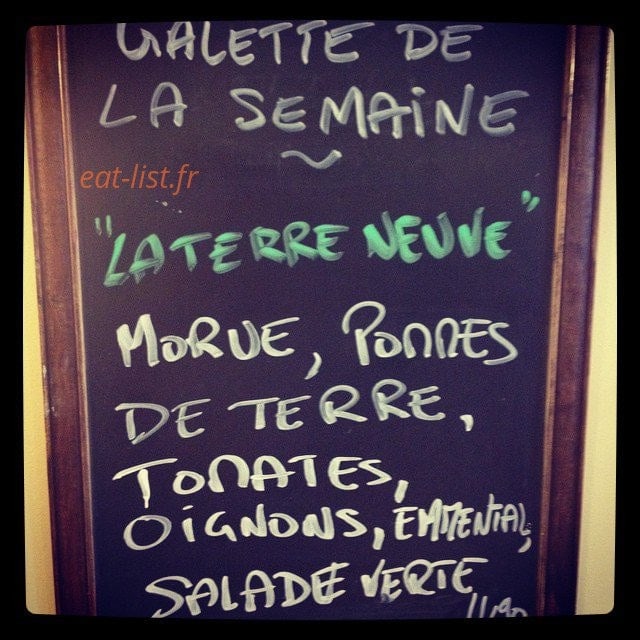 GALETTE DE
LA SEMAINE
~
eat-list.fr
"LA TERRE NEUVE"
MORUE, POMMES
DE TERRE,
TOMATES,
OIGNONS, EMMENTAL,
SALADE VERTE
11,90